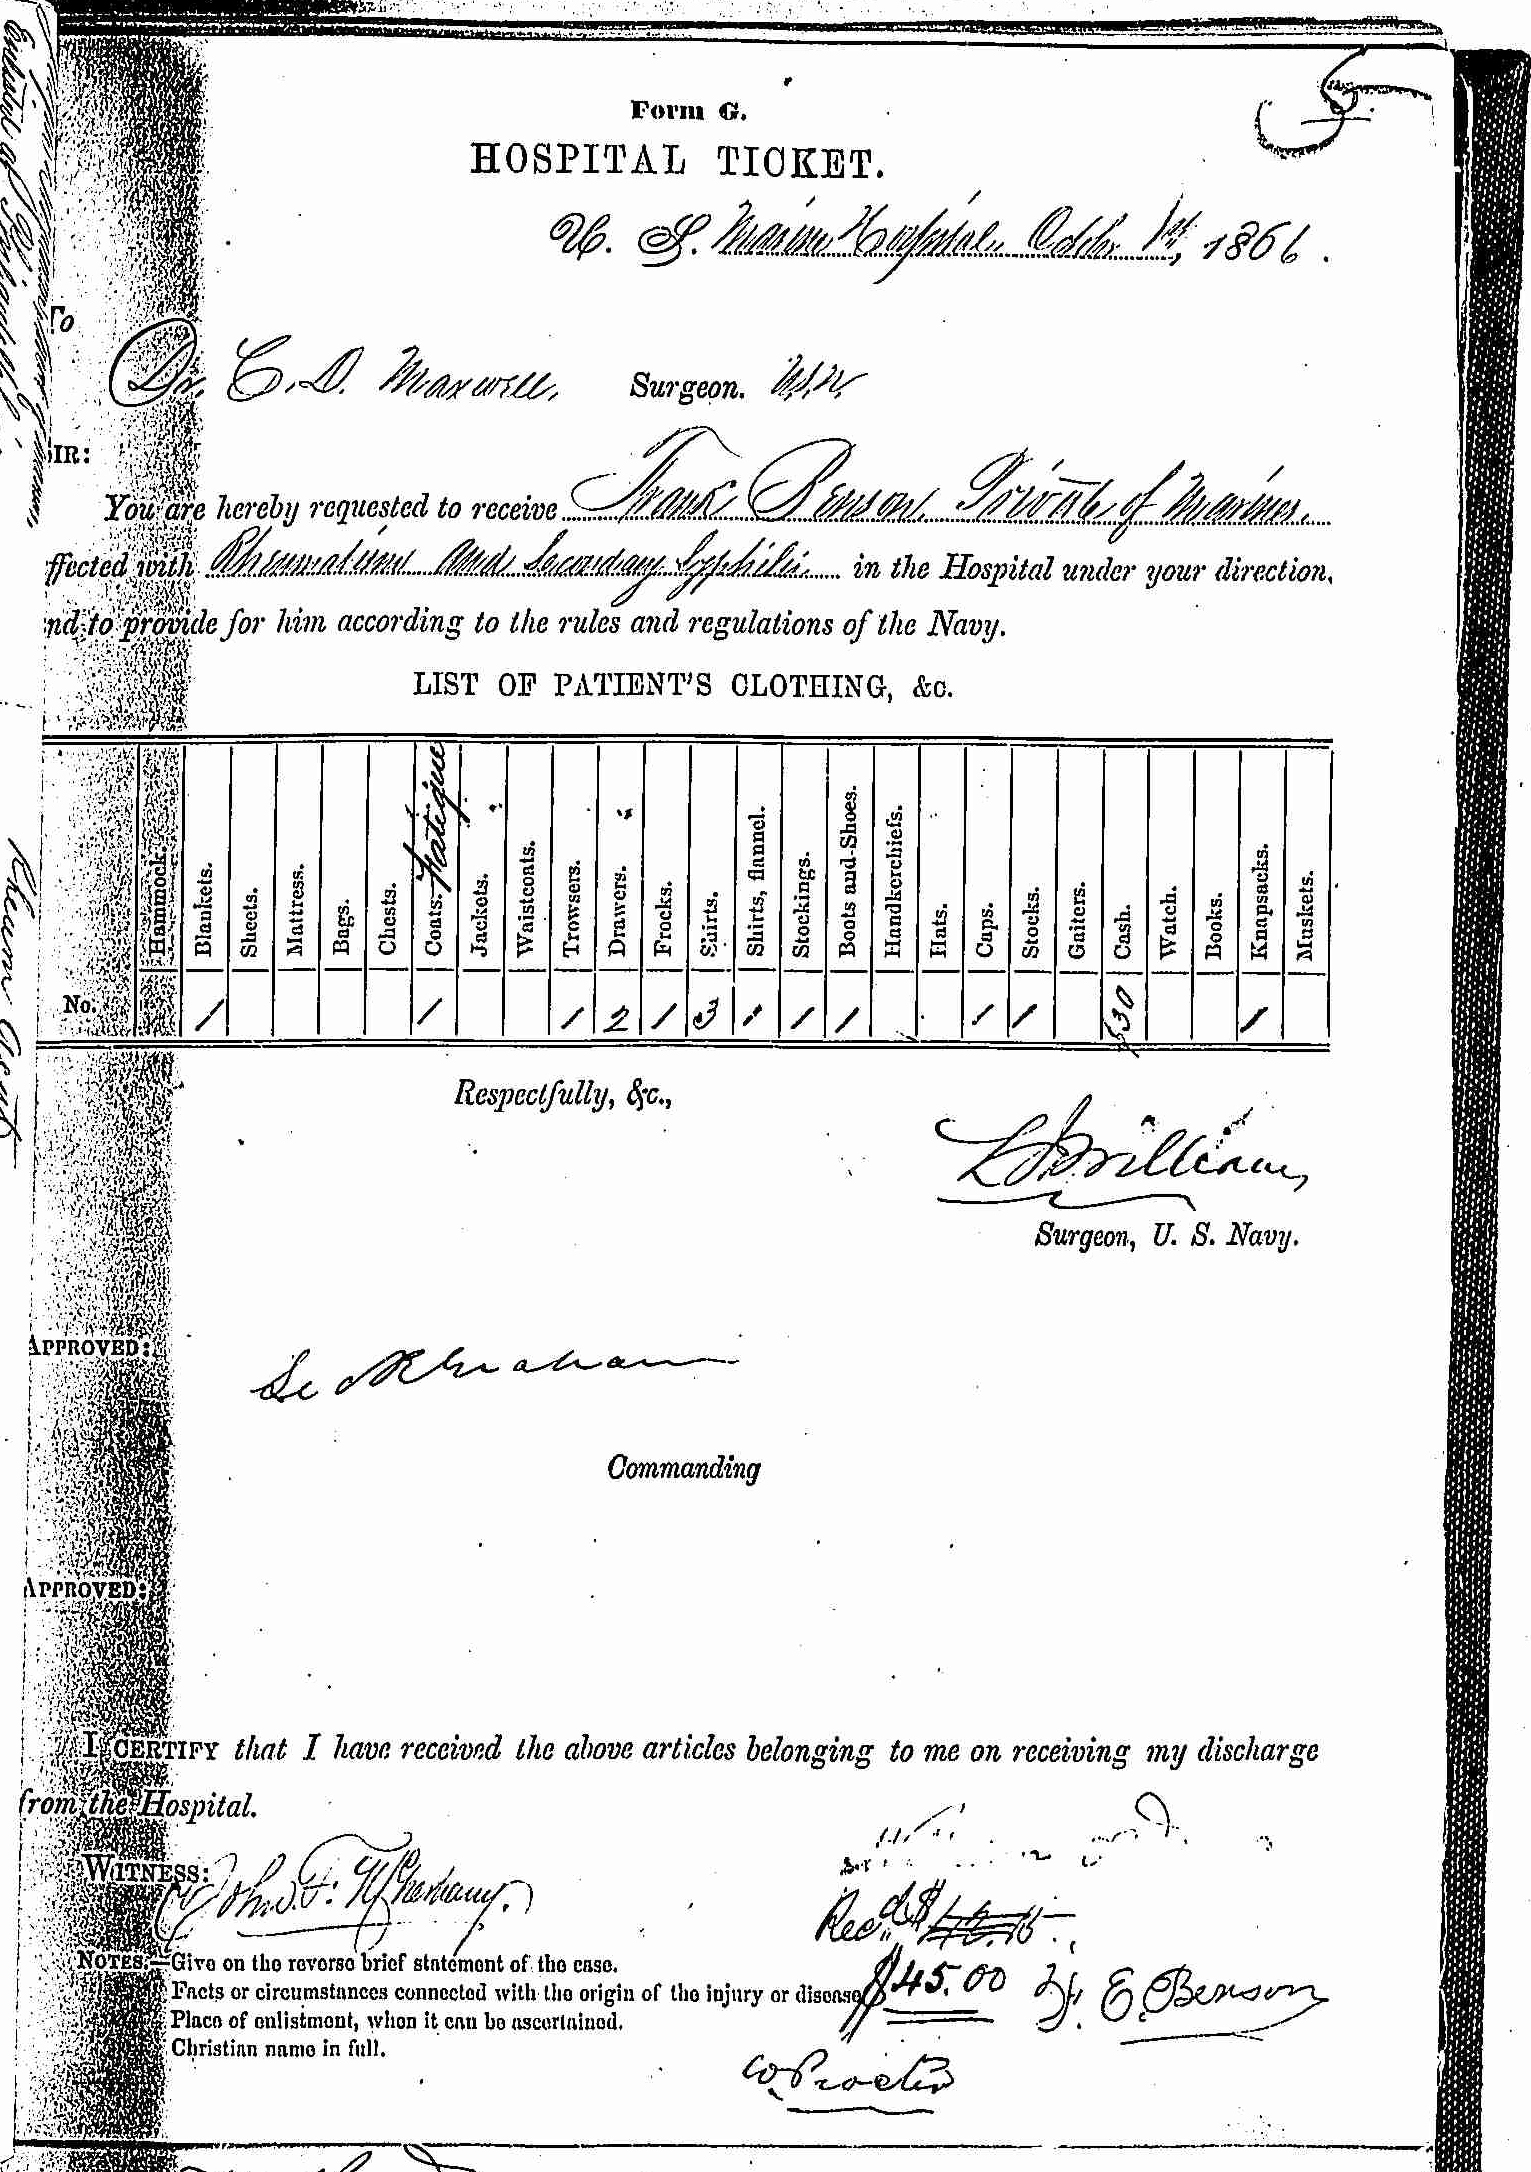 Form G.
HOSPITAL TICKET.
U. S. Marine Hospital, Octbr 1st, 1866.
To
Dr. C. D. Maxwell, Surgeon. U.S.N.
SIR:
You are hereby requested to receive Frank Benson, Private of Marines.
ffected with Rheumatism and Secondary Syphilis. in the Hospital under your direction,
nd to provide for him according to the rules and regulations of the Navy.
LIST OF PATIENT'S CLOTHING, &c.
Hammock. Blankets. Sheets. Mattress. Bags. Chests. Coats. Fatigue Jackets. Waistcoats. Trowsers. Drawers. Frocks. Shirts. Shirts, flannel. Stockings. Boots and Shoes. Handkerchiefs. Hats. Caps. Stocks. Gaiters. Cash. Watch. Books. Knapsacks. Muskets.
No. 1 1 1 2 1 3 1 1 1 1 1 $30 1
Respectfully, &c.,
Williams
Surgeon, U. S. Navy.
APPROVED:
Graham
Commanding
APPROVED:
I CERTIFY that I have received the above articles belonging to me on receiving my discharge
from the Hospital.
WITNESS:
John F.
Recd. $
$45.00 F. E. Benson
NOTES.—Give on the reverse brief statement of the case.
Facts or circumstances connected with the origin of the injury or disease
Place of enlistment, when it can be ascertained.
Christian name in full.
W. Procter